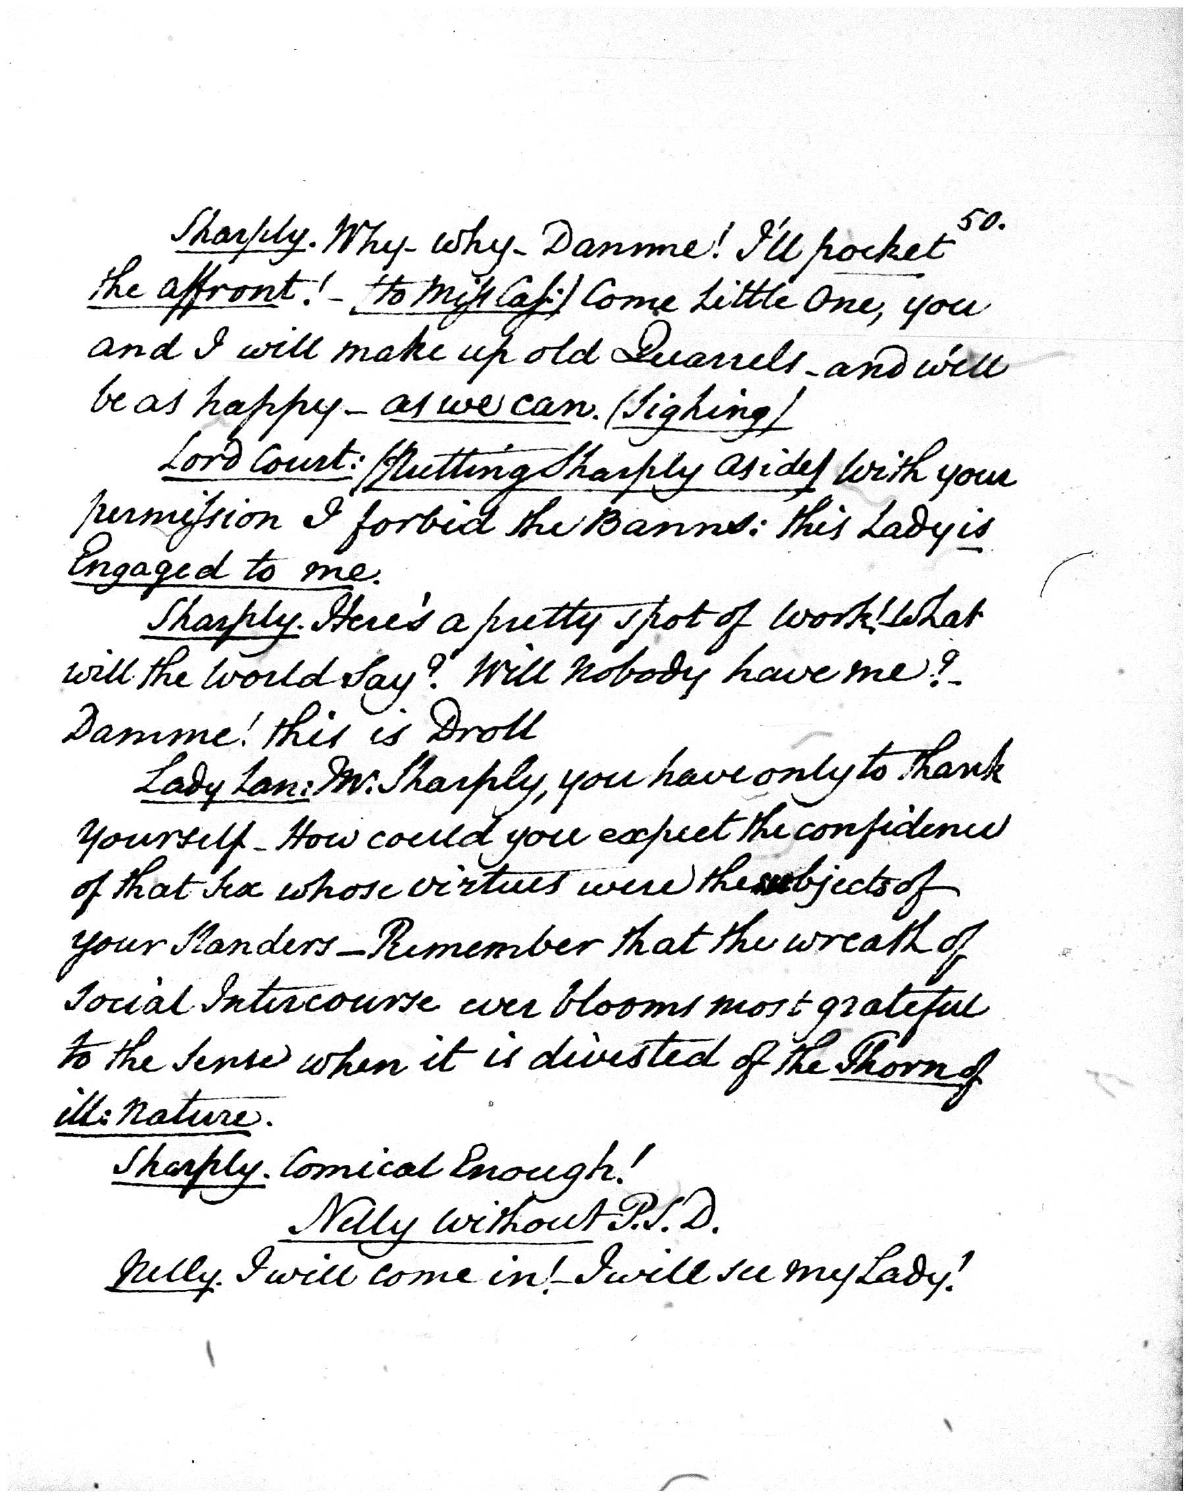 50.
Sharply. Why- why- Damme! I'll pocket
the affront! - (to Miss Cas:) Come little One, you
and I will make up old Quarrels - and we'll
be as happy - as we can. (Sighing)
Lord Court: (Putting Sharply aside) With your
permission I forbid the Banns: this Lady is
Engaged to me.
Sharply. Here's a pretty spot of work! - What
will the world say? Will nobody have me? -
Damme! this is Droll
Lady Lan: Mr. Sharply, you have only to thank
yourself - How could you expect the confidence
of that sex whose virtues were the subjects of
your slanders - Remember that the wreath of
social Intercourse ever blooms most grateful
to the sense when it is divested of the Thorn of
ill: nature.
Sharply. Comical Enough!
Nelly without P.S.D.
Nelly. I will come in! - I will see my Lady!